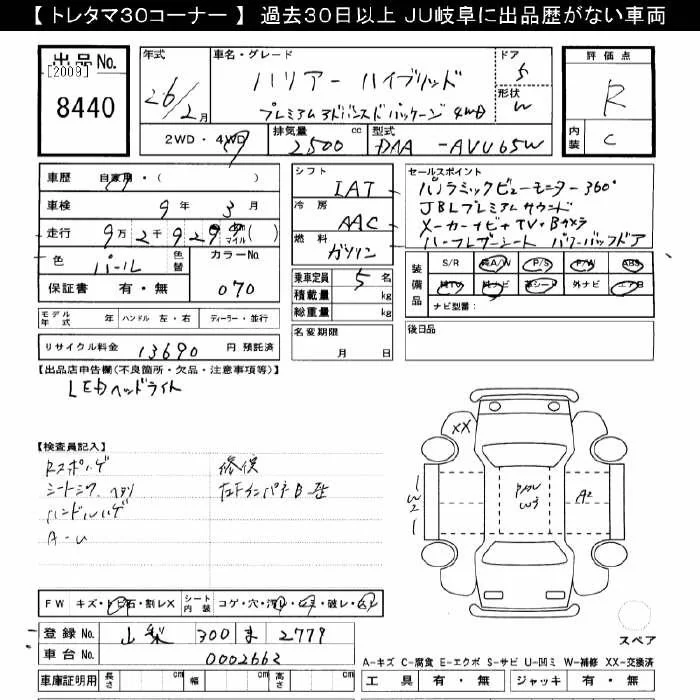 【トレタマ30コーナー】 過去30日以上 JU岐阜に出品歴がない車両
出品No. 年式 車名・グレード ドア 評価点
[2009] ハリアー ハイブリッド 5 R
8440 26/2月 プレミアムアドバンスドパッケージ 4WD 形状 W
2WD・4WD 排気量 2500 cc 型式 DAA -AVU65W 内装 C
車歴 自家用・( ) シフト IAT セールスポイント
車検 9年 3月 冷房 AAC パノラミックビューモニター 360°
走行 9万2千9 マイル ( ) 燃料 ガソリン JBLプレミアムサウンド
色 パール 色替 カラーNo. 070 メーカーナビ+TV+Bカメラ
ハーフレザーシート パワーバックドア
保証書 有・無 乗車定員 5名 装備品 S/R 純A/W P/S P/W ABS
積載量 kg 純TV 純ナビ 革シート 外ナビ エアB
総重量 kg ナビ型番:
モデル年式 年 ハンドル 左・右 ディーラー・並行 名変期限 月 日 後日品
リサイクル料金 13690 円 預託済
【出品店申告欄(不良箇所・欠品・注意事項等)】
LEDヘッドライト
XX
【検査員記入】
修復
シートシワ
ハンドルハゲ
A-U
W2
A2
FW キズ・トビ石・割レX シート内装 コゲ・穴・
スペア
登録No. 山梨 300 ま 2779
車台No. 0002662
A-キズ C-腐食 E-エクボ S-サビ U-凹ミ W-補修 XX-交換済
車庫証明用 長さ cm 幅 cm 高さ cm 工具 有・無 ジャッキ 有・無